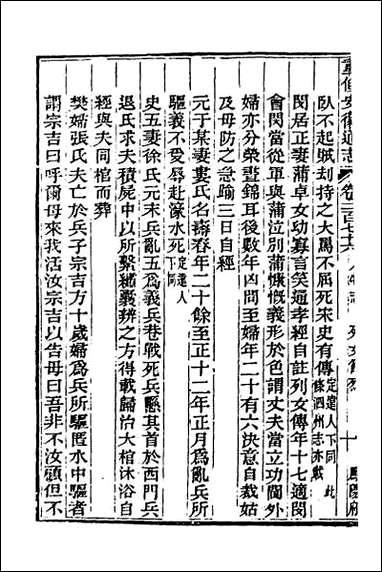 重修安徽通志 卷二百七十六 人物志 列女節烈 十 鳳陽府
臥不起賊刦持之大罵不屈死宋史有傳定遠人下同 此條泗州志亦載
閔居正妻蒲卓女幼寡言笑通孝經自註列女傳年十七適閔
會閔當從軍與蒲泣別蒲慷慨義形於色謂丈夫當立功閫外
婦亦分榮晝錦耳後數年凶問至婦年二十有六決意自裁姑
及母防之急踰三日自經
元于某妻婁氏名壽春年二十餘至正十二年正月為亂兵所
驅義不愛辱赴濠水死定遠人下同
史五妻徐氏元末兵亂五為義兵巷戰死兵懸其首於西門兵
退氏求夫積屍中以所繫繡囊辨之方得載歸治大棺沐浴自
經與夫同棺而葬
樊婦張氏夫亡於兵子宗吉方十歲婦為兵所驅匿水中驅者
謂宗吉曰呼爾母來我活汝宗吉以告母曰吾非不汝顧但不